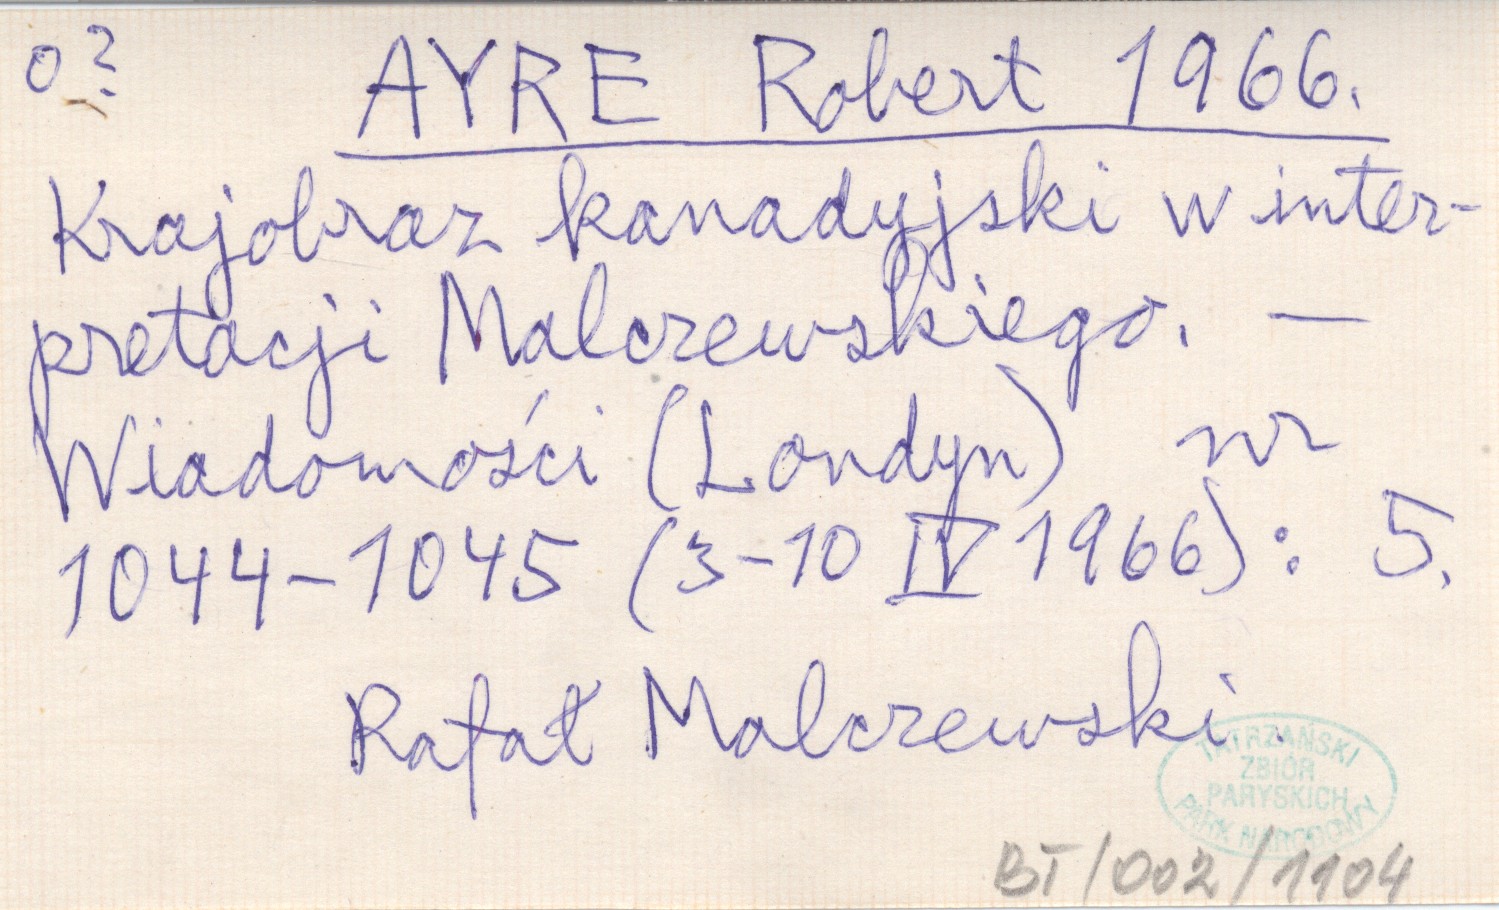 o?
AYRE Robert 1966.
Krajobraz kanadyjski w inter-
pretacji Malczewskiego. —
Wiadomości (Londyn) nr
1044-1045 (3-10 IV 1966): 5.
Rafał Malczewski.
TATRZAŃSKI
ZBIÓR
PARYSKICH
PARK NARODOWY
BT/002/1104